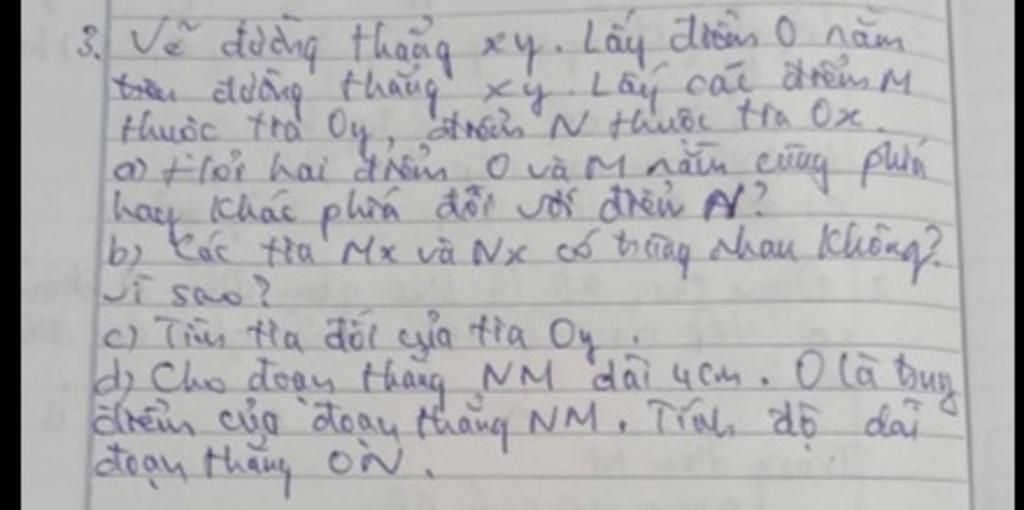 3. Vẽ đường thẳng xy. Lấy điểm O nằm
trên đường thẳng xy. Lấy các điểm M
thuộc tia Oy, điểm N thuộc tia Ox.
a) Hỏi hai điểm O và M nằm cùng phía
hay khác phía đối với điểm N?
b) Các tia Mx và Nx có trùng nhau không?
Vì sao?
c) Tìm tia đối của tia Oy.
d) Cho đoạn thẳng NM dài 4cm. O là trung
điểm của đoạn thẳng NM. Tính độ dài
đoạn thẳng ON.